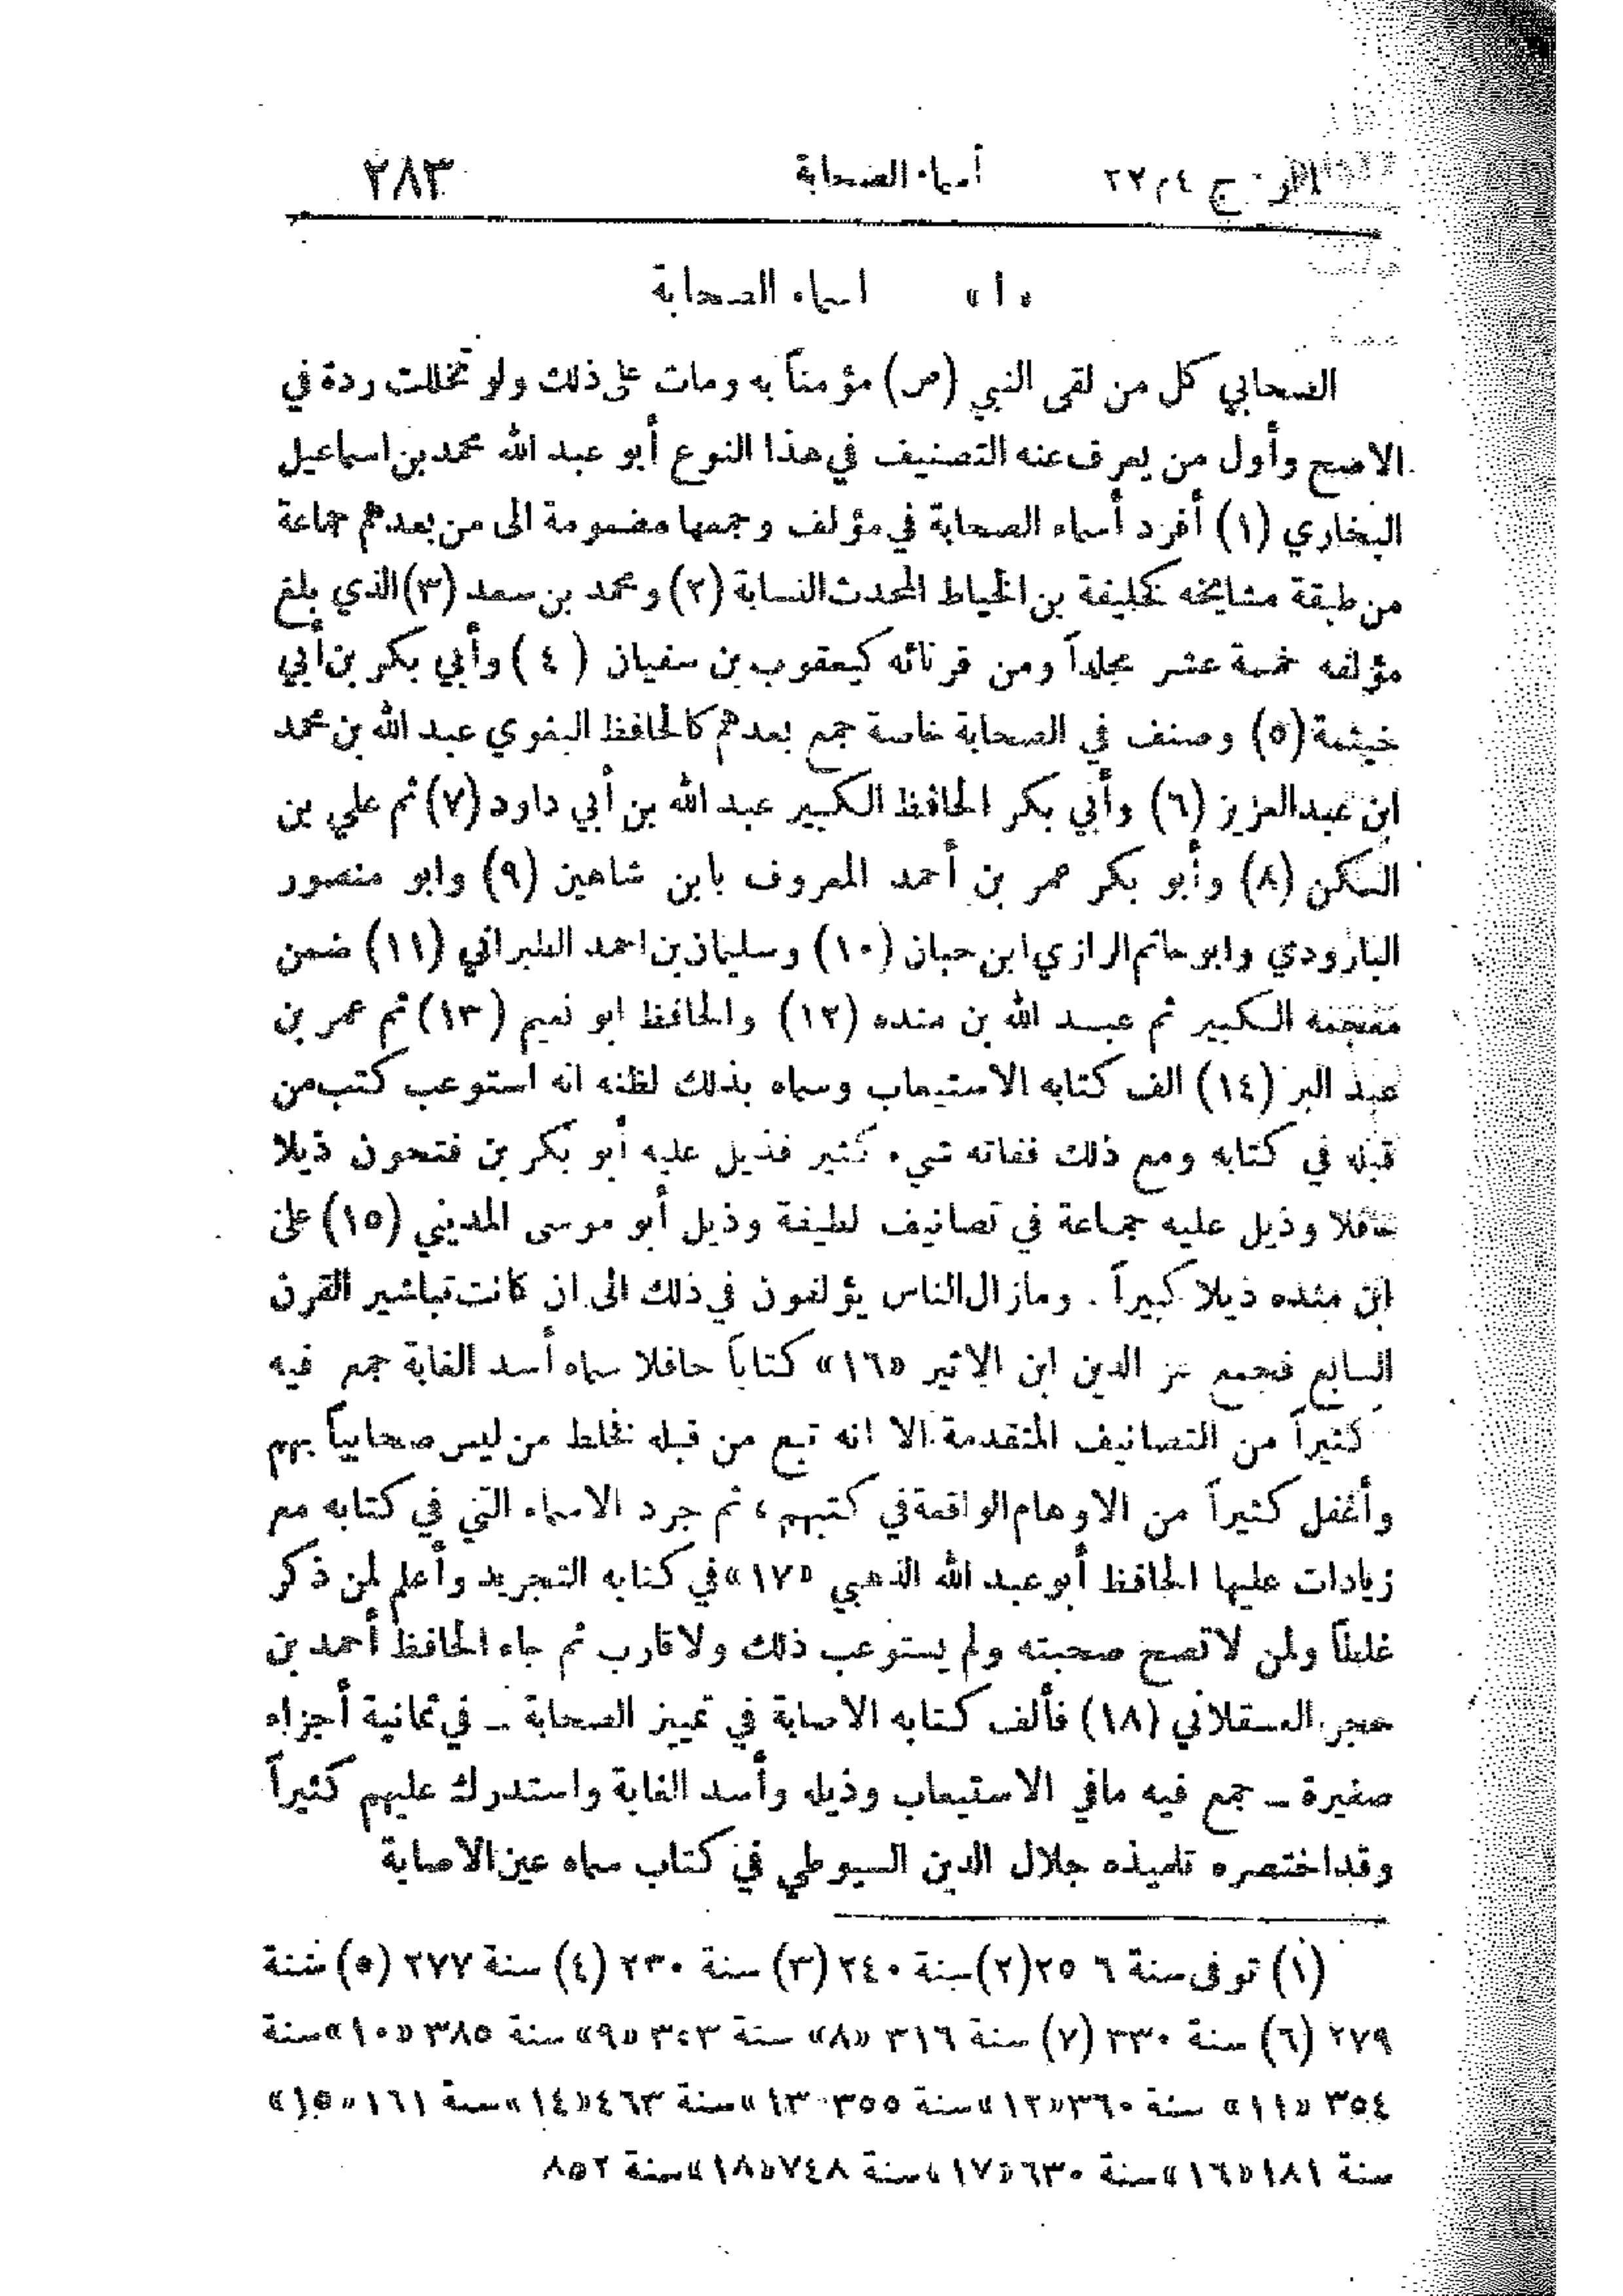 ج ٤ م ٢٧ أسماء الصحابة ٢٨٣
«١» اسماء الصحابة
الصحابي كل من لقى النبي (ص) مؤمناً به ومات على ذلك ولو تخللت ردة في
الاصح وأول من يعرف عنه التصنيف في هذا النوع أبو عبد الله محمد بن اسماعيل
البخاري (١) أفرد أسماء الصحابة في مؤلف وجمعها مضمومة الى من بعدهم جماعة
من طبقة مشايخه كخليفة بن الخياط المحدث النسابة (٢) ومحمد بن سعد (٣) الذي بلغ
مؤلفه خمسة عشر مجلداً ومن قرنائه كيعقوب بن سفيان (٤) وأبي بكر بن أبي
خيثمة (٥) وصنف في الصحابة خاصة جمع بعدهم كالحافظ البغوي عبد الله بن محمد
ابن عبد العزيز (٦) وأبي بكر الحافظ الكبير عبد الله بن أبي داود (٧) ثم علي بن
السكن (٨) وأبو بكر عمر بن أحمد المعروف بابن شاهين (٩) وابو منصور
البارودي وابو حاتم الرازي ابن حبان (١٠) وسليمان بن احمد الطبراني (١١) ضمن
معجمه الكبير ثم عبد الله بن منده (١٢) والحافظ ابو نعيم (١٣) ثم عمر بن
عبد البر (١٤) الف كتابه الاستيعاب وسماه بذلك لظنه انه استوعب كتب من
قبله في كتابه ومع ذلك ففاته شيء كثير فذيل عليه أبو بكر بن فتحون ذيلا
حافلا وذيل عليه جماعة في تصانيف لطيفة وذيل أبو موسى المديني (١٥) على
ابن منده ذيلا كبيراً . ومازال الناس يؤلفون في ذلك الى ان كانت تباشير القرن
السابع فجمع عز الدين ابن الاثير «١٦» كتاباً حافلا سماه أسد الغابة جمع فيه
كثيراً من التصانيف المتقدمة الا انه تبع من قبله فخلط من ليس صحابياً بهم
وأغفل كثيراً من الاوهام الواقعة في كتبهم ، ثم جرد الاسماء التي في كتابه مع
زيادات عليها الحافظ أبو عبد الله الذهبي «١٧» في كتابه التجريد وأعلم لمن ذكر
غلطاً ولمن لا تصح صحبته ولم يستوعب ذلك ولا قارب ثم جاء الحافظ أحمد بن
حجر العسقلاني (١٨) فألف كتابه الاصابة في تمييز الصحابة – في ثمانية أجزاء
صغيرة – جمع فيه مافي الاستيعاب وذيله وأسد الغابة واستدرك عليهم كثيراً
وقد اختصره تلميذه جلال الدين السيوطي في كتاب سماه عين الاصابة
(١) توفى سنة ٢٥٦ (٢) سنة ٢٤٠ (٣) سنة ٢٣٠ (٤) سنة ٢٧٧ (٥) سنة
٢٧٩ (٦) سنة ٣٣٠ (٧) سنة ٣١٦ «٨» سنة ٣٤٣ «٩» سنة ٣٨٥ «١٠» سنة
٣٥٤ «١١» سنة ٣٦٠ «١٢» سنة ٣٥٥ «١٣» سنة ٤٦٣ «١٤» سنة ١٦١ «١٥»
سنة ١٨١ «١٦» سنة ٦٣٠ «١٧» سنة ٧٤٨ «١٨» سنة ٨٥٢